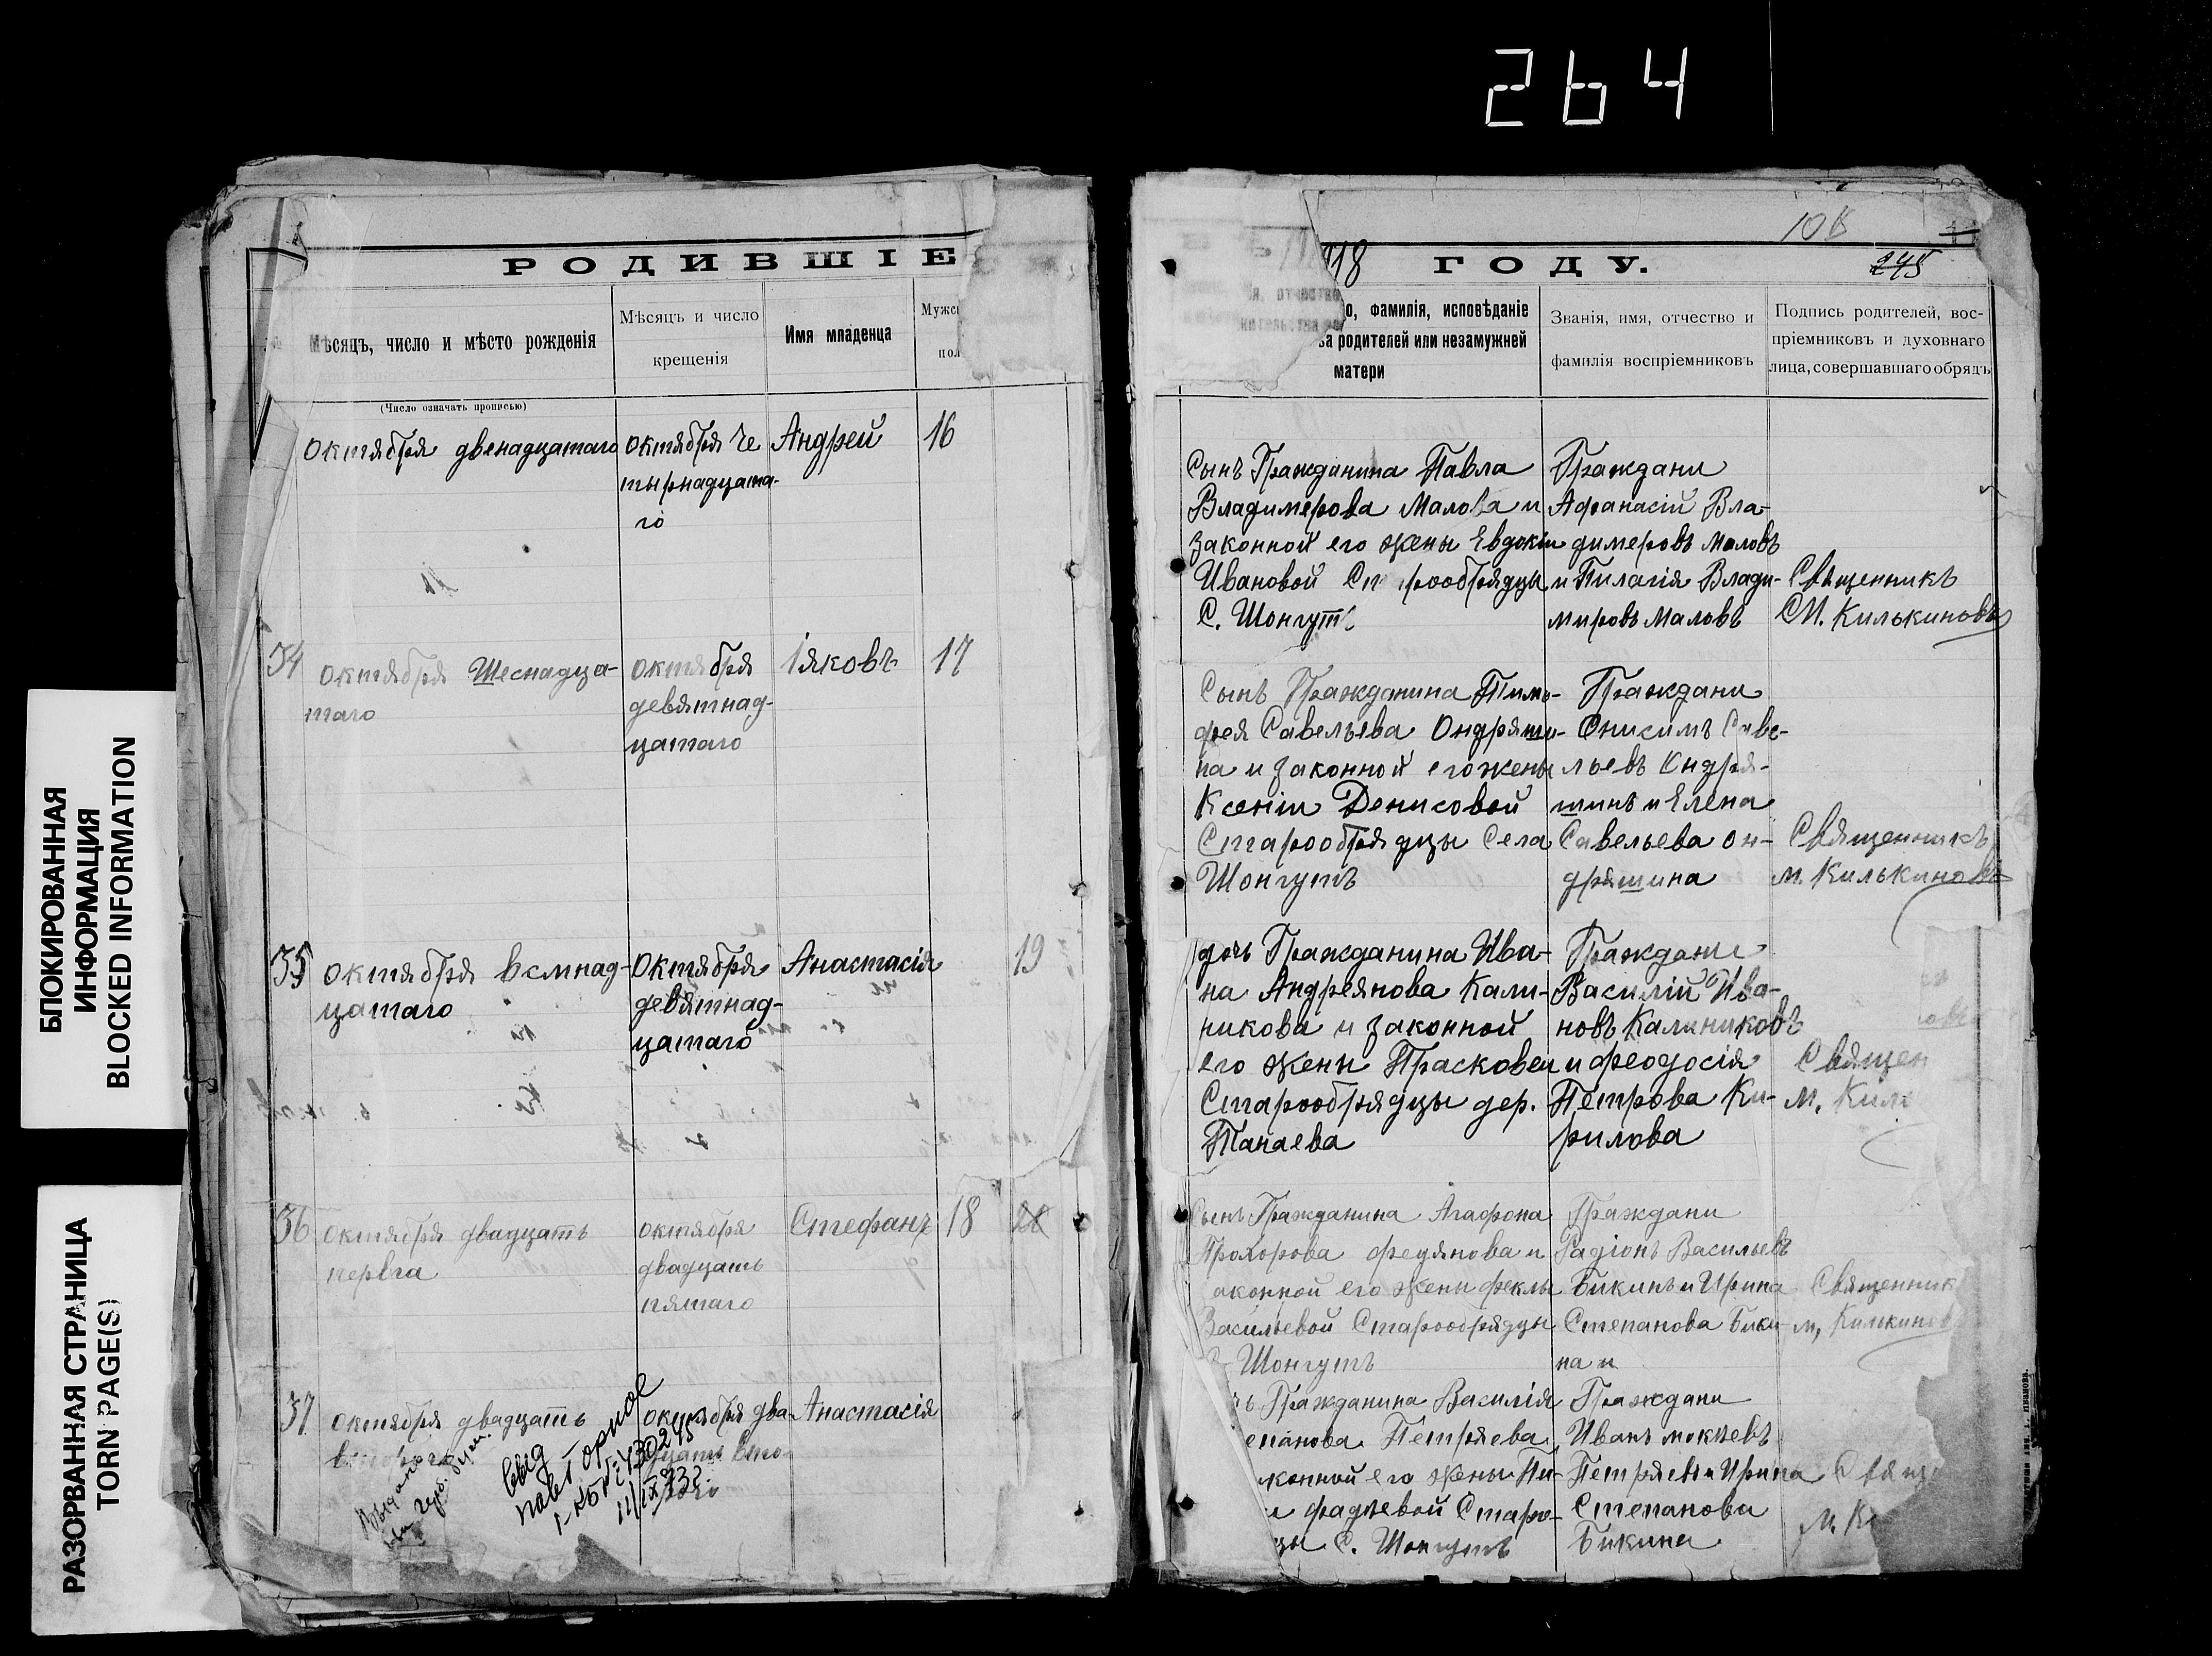 264
БЛОКИРОВАННАЯ
ИНФОРМАЦИЯ
BLOCKED INFORMATION
РАЗОРВАННАЯ СТРАНИЦА
TORN PAGE(S)
РОДИВШІЕ
Мѣсяцъ, число и мѣсто рожденія
Мѣсяцъ и число
крещенія
Имя младенца
(Число означать прописью)
октября двенадцатаго
октября че
тырнадцата-
го
Андрей
16
34
октября Шеснадца-
таго
октября
девятнад-
цатаго
Іяковъ
17
35
октября всмнад-
цатаго
Октября
девятнад-
цатаго
Анастасія
19
36
октября двадцать
перваа
октября
двадцать
пятаго
Стефанъ
18
37
октября двадцать
октября два-
дцать вто-
Анастасія
свид
повторное
918 ГОДУ.
10
245
о, фамилія, исповѣданіе
родителей или незамужней
матери
Званія, имя, отчество и
фамилія воспріемниковъ
Подпись родителей, вос-
пріемниковъ и духовнаго
лица, совершавшаго обрядъ
Сынъ Гражданина Павла
Владимерова Малова и
законной его жены Евдокіи
Ивановой Ст рообрядцы
С. Шонгутъ
Граждани
Афанасій Вла-
димеровъ Маловъ
и Пилагія Влади-
мировъ Маловъ
Священникъ
М. Килькиновъ
Сынъ Гражданина Тимо-
фея Савельева Ондряши-
на и законной его жены
Ксеніи Денисовой
Старообрядцы Села
Шонгутъ
Граждани
Онисимъ Саве-
льевъ Ондря-
шинъ и Елена
Савельева Он-
дряшина
Священникъ
М. Килькиновъ
дочь Гражданина Ива-
на Андреянова Кали-
никова и законной
его жены Прасковеи
Старообрядцы дер.
Танаева
Граждане
Василій Ива-
новъ Калиниковъ
и феодосія
Петрова Ки-
рилова
Священ
М. Киль
Сынъ Гражданина Агафона
Прохорова федянова и
аконной его жены феклы
Васильевой Старообрядцы
Шонгутъ
Граждани
Радіонъ Васильевъ
Бикинъ и Ирина
Степанова Бики-
на и
Священник
М. Килькинов
ъ Гражданина Василія
епанова Петряева
конной его жены
фадѣевой Старо-
цы С. Шонгутъ
Граждани
Иванъ мокѣевъ
Петряевъ и Ирина
Степанова
Бикина
Свящ
М. К